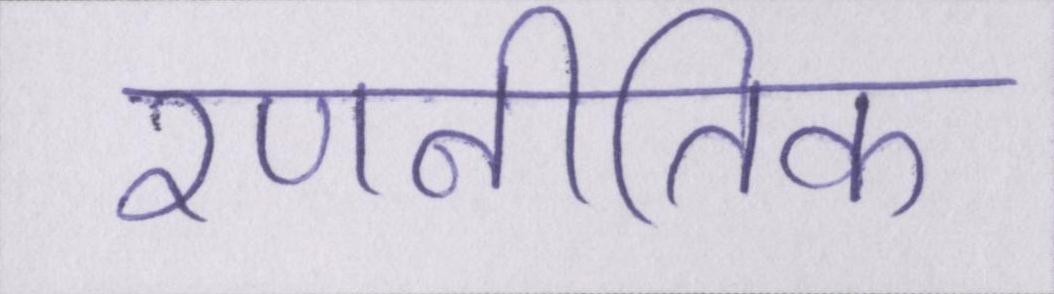 रणनीतिक